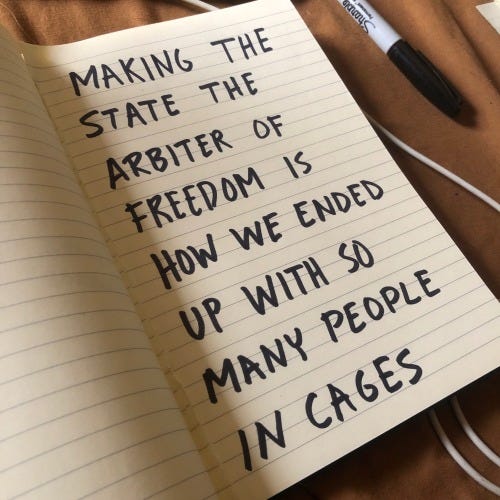 MAKING THE
STATE THE
ARBITER OF
FREEDOM IS
HOW WE ENDED
UP WITH SO
MANY PEOPLE
IN CAGES
Sharpie